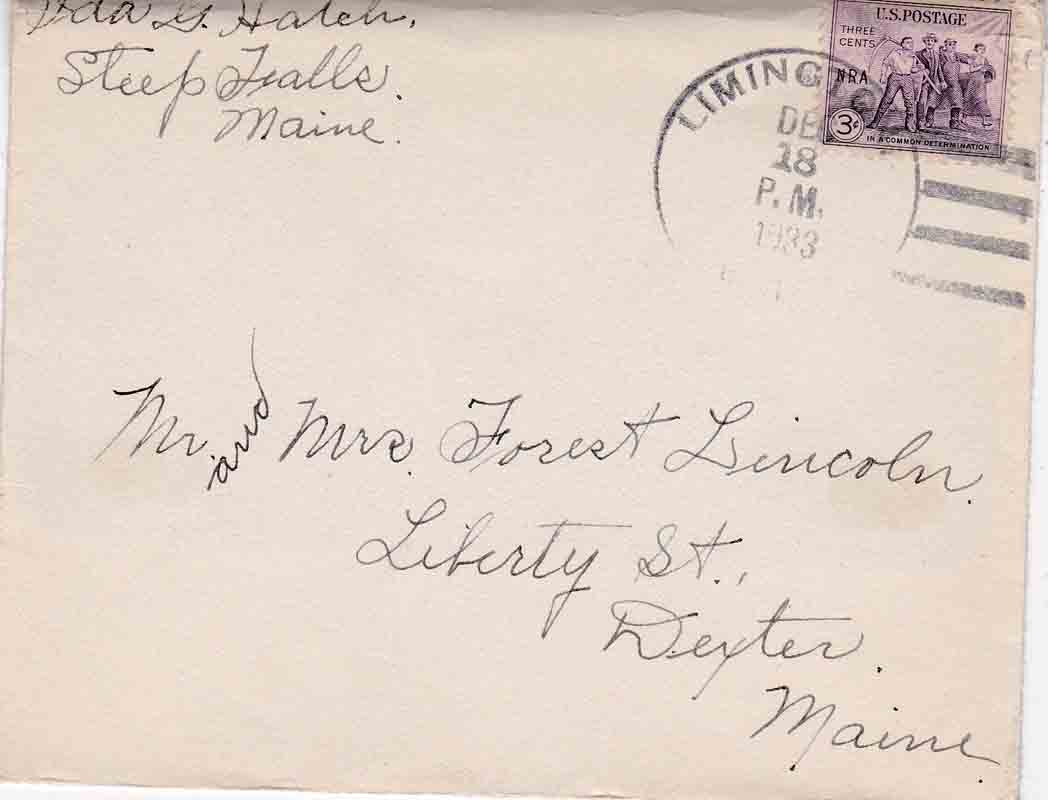 Ida G. Hatch.
Steep Falls.
Maine.
U.S. POSTAGE
THREE
CENTS
NRA
3¢
IN A COMMON DETERMINATION
LIMING
DE
18
P.M.
1933
Mr. and Mrs. Forest Lincoln.
Liberty St.,
Dexter.
Maine.